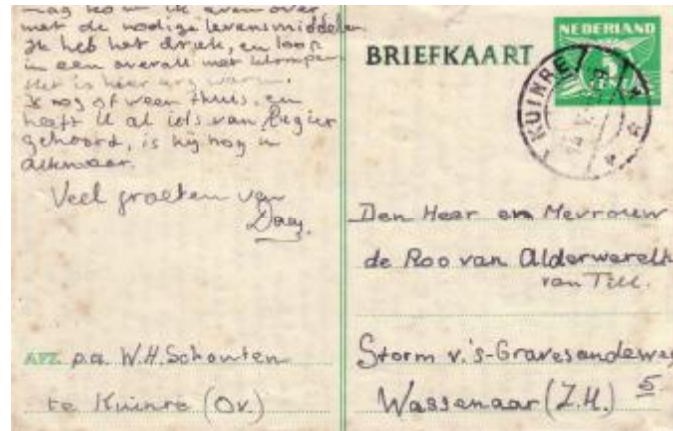 mag kom ik even over
met de nodige levensmiddelen
Ik heb het druk, en loop
in een overall met klompen
Het is hier erg warm.
Is nog of weer thuis, en
heeft U al iets van Regier
gehoord, is hij nog in
Alkmaar.
Veel groeten van
Daey.
AFZ. p.a. W.H. Schouten
te Kuinre (Ov.)
BRIEFKAART
NEDERLAND
5
CENT
KUINRE
Den Heer en Mevrouw
de Roo van Alderwerelt
van Till.
Storm v. 's-Gravesandeweg
Wassenaar (Z.H.) 5